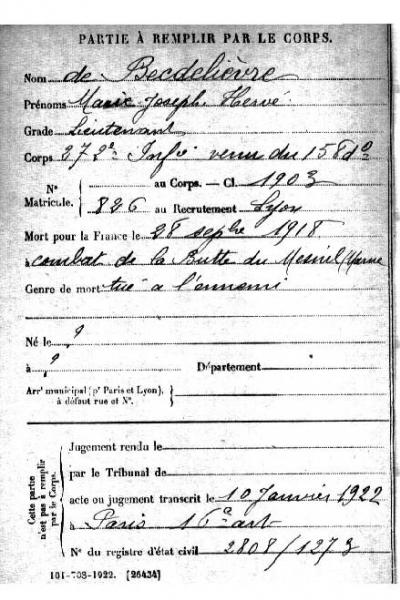 PARTIE À REMPLIR PAR LE CORPS.
Nom de Becdelièvre
Prénoms Marie Joseph Hervé
Grade Lieutenant
Corps 372e Infie venu du 158 do
N° Matricule. { au Corps. — Cl. 1903
826 au Recrutement Lyon
Mort pour la France le 28 septbre 1918
à combat de la Butte du Mesnil (Marne
Genre de mort tué à l'ennemi
Né le ?
à ? Département
Arrt municipal (pr Paris et Lyon),
à défaut rue et N°.
Cette partie n'est pas à remplir par le Corps.
Jugement rendu le
par le Tribunal de
acte ou jugement transcrit le 10 Janvier 1922
à Paris 16e art
N° du registre d'état civil 2808/1273
101-708-1922. [26434]